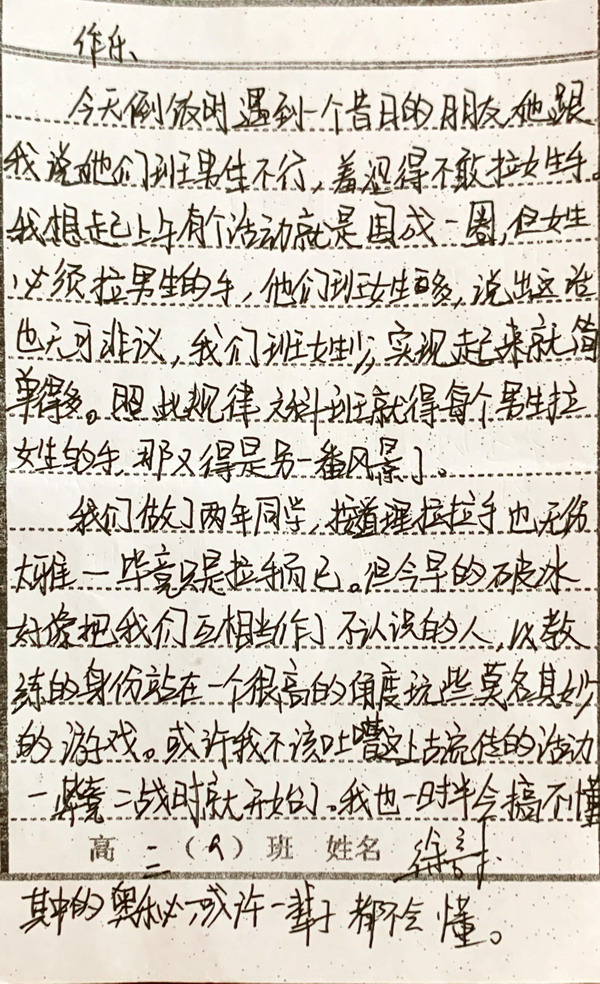 作乐
今天倒饭时遇到一个昔日的朋友,他跟
我说他们班男生不行,羞涩得不敢拉女生手。
我想起上午有个活动就是围成一圈,但女生
必须拉男生的手,他们班女生多,说出这话
也无可非议,我们班女生少,实现起来就简
单得多。照此规律文科班就得每个男生拉
女生的手,那又得是另一番风景了。
我们做了两年同学,按道理拉拉手也无伤
大雅一毕竟只是拉手而已。但今早的破冰
好像把我们互相当作了不认识的人,以教
练的身份站在一个很高的角度玩些莫名其妙
的游戏。或许我不该吐嘈这上古流传的活动
一毕竟二战时就开始了。我也一时半会搞不懂
高二(9)班 姓名 徐
其中的奥秘,或许一辈子都不会懂。